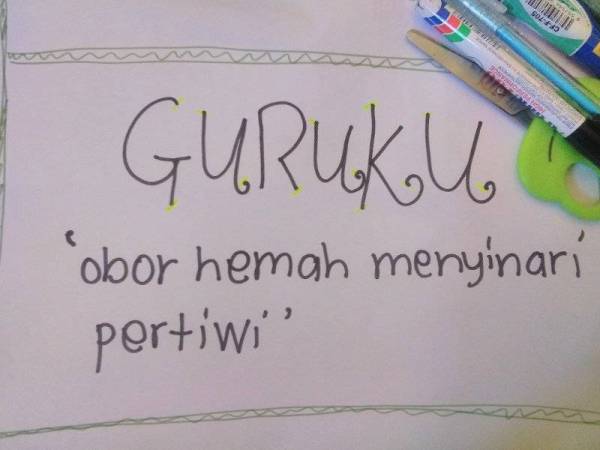 GURUKU
'obor hemah menyinari
pertiwi''
CF-F705